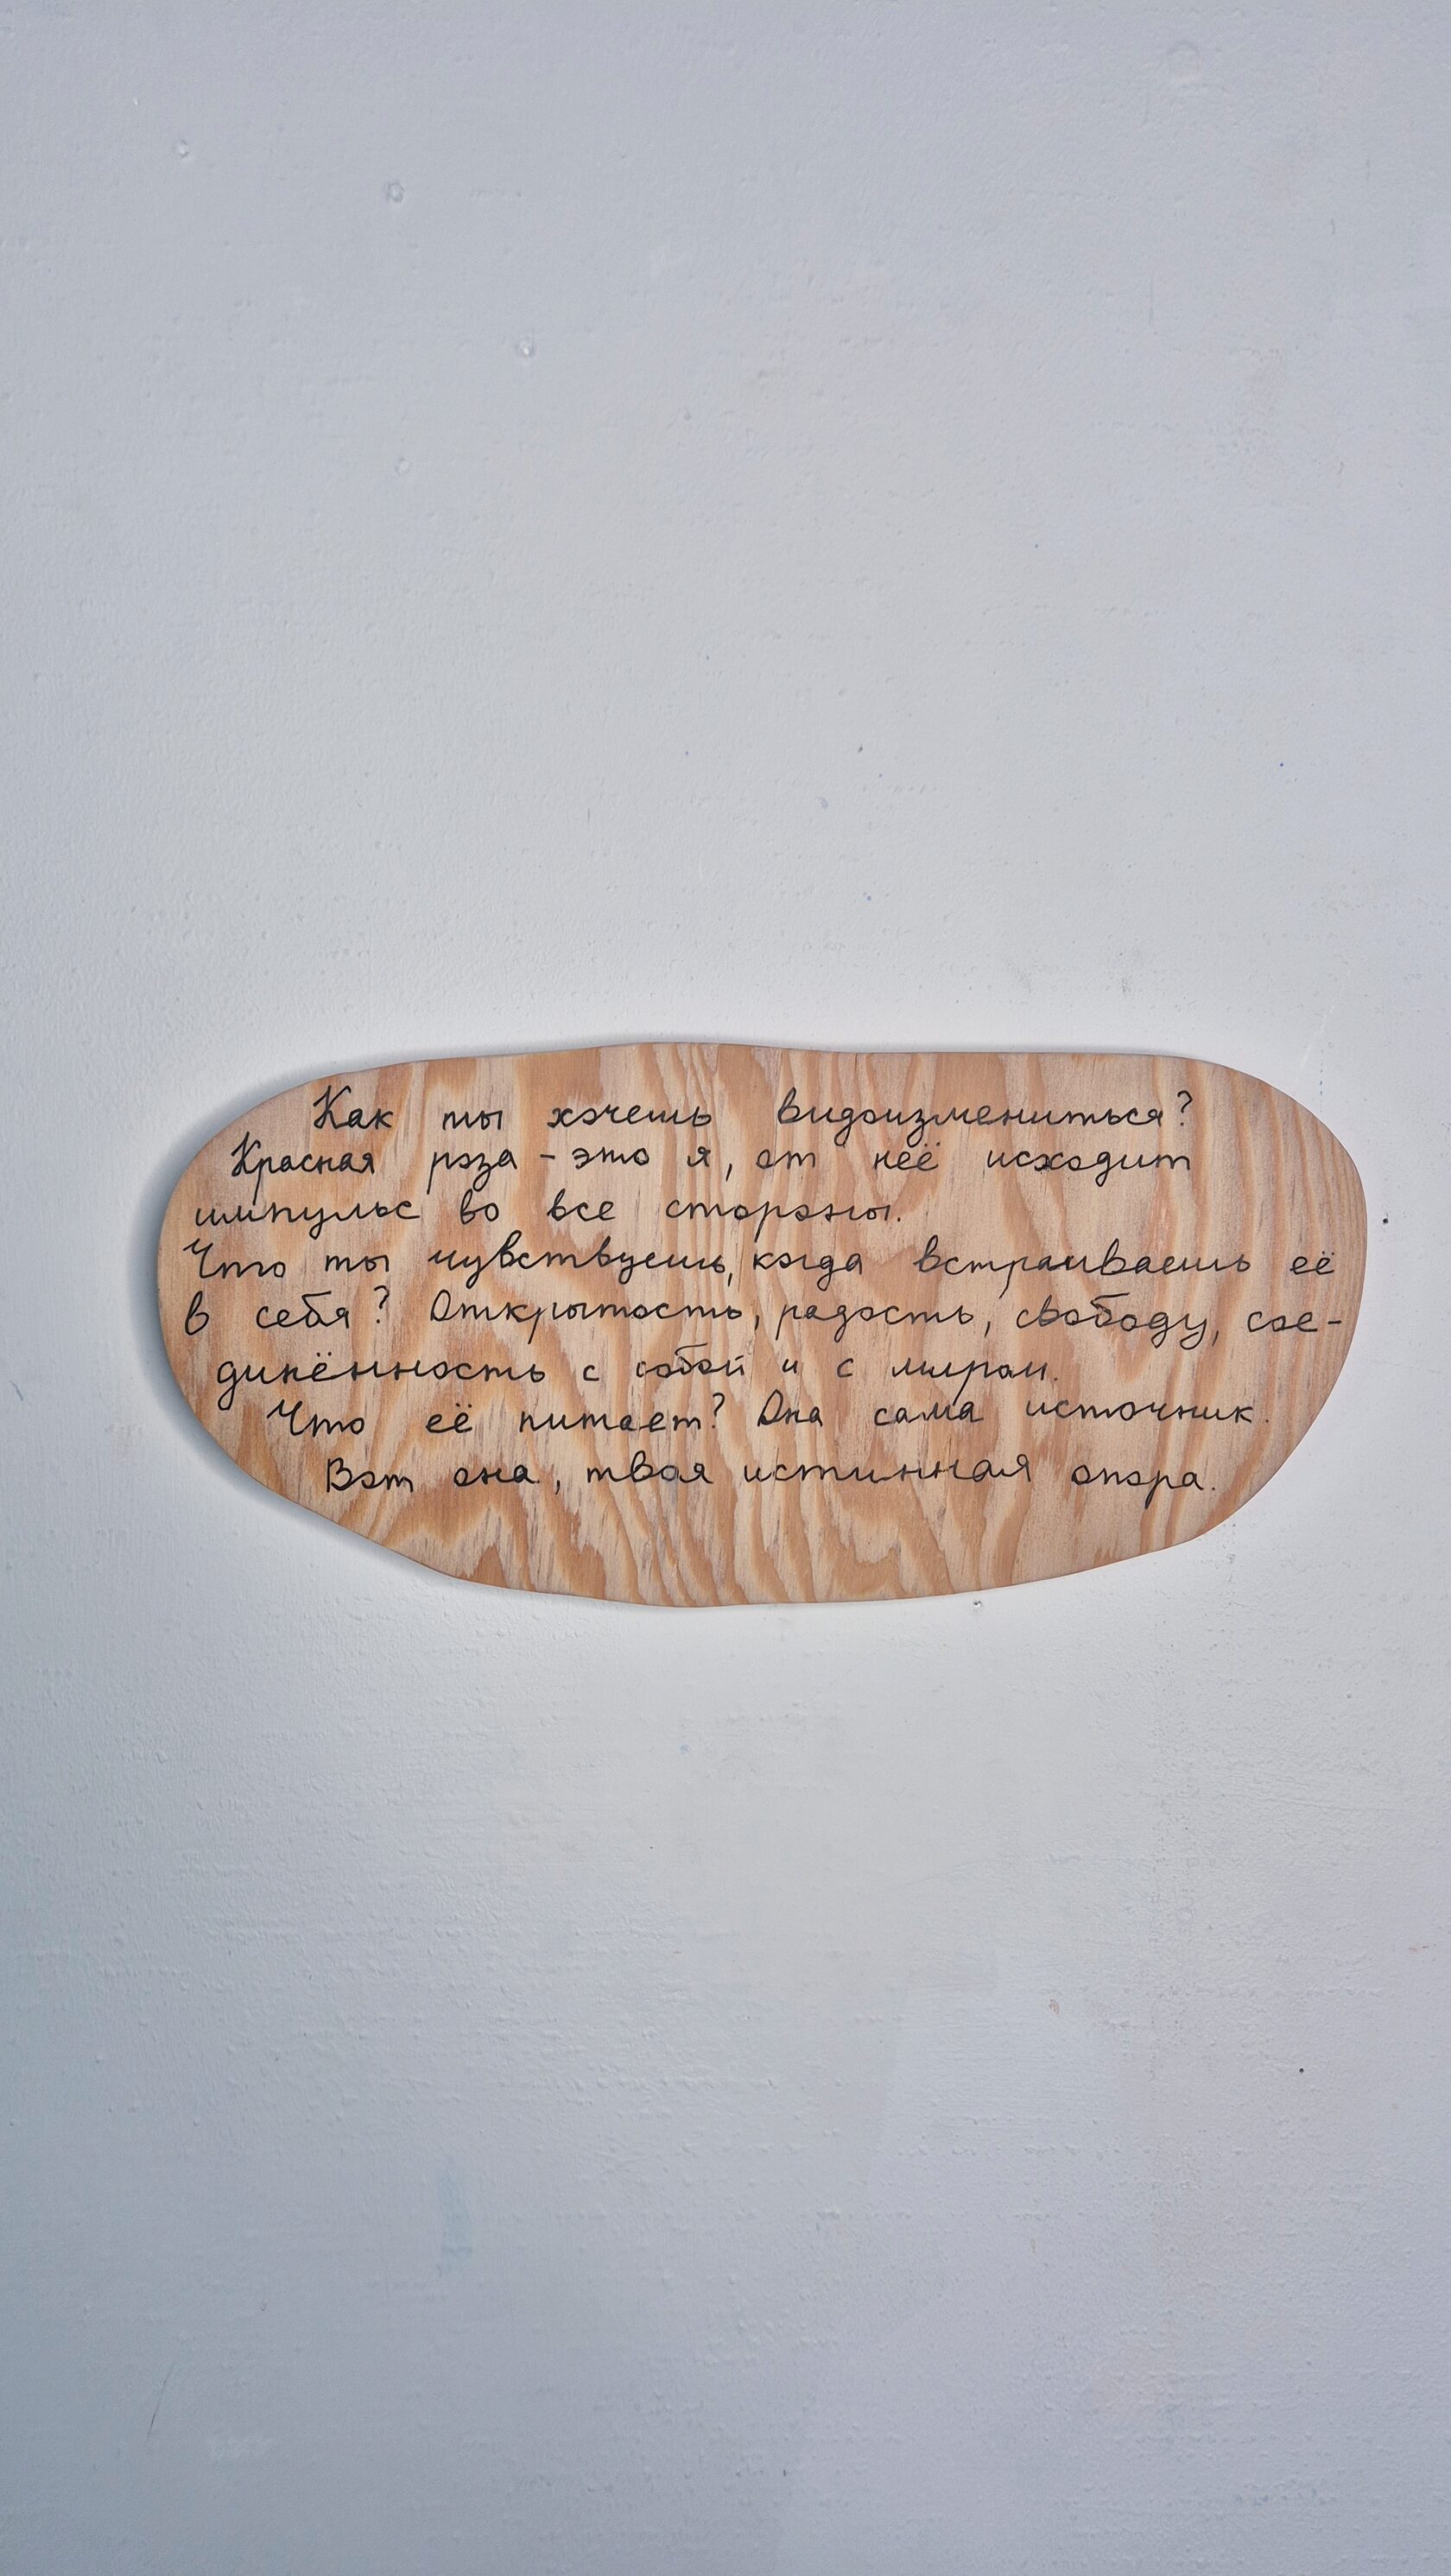 Как ты хочешь видоизмениться?
Красная роза - это я, от неё исходит
импульс во все стороны.
Что ты чувствуешь, когда встраиваешь её
в себя? Открытость, радость, свободу, сое-
динённость с собой и с миром.
Что её питает? Она сама источник.
Вот она, твоя истинная опора.